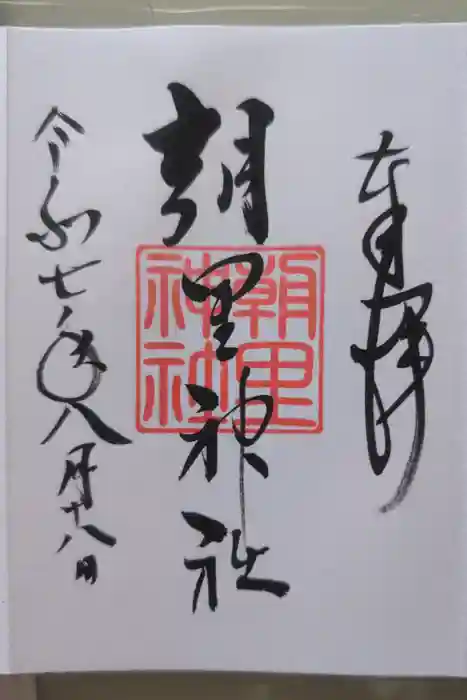 奉拝
朝里神社
朝里
神社
令和七年八月十八日